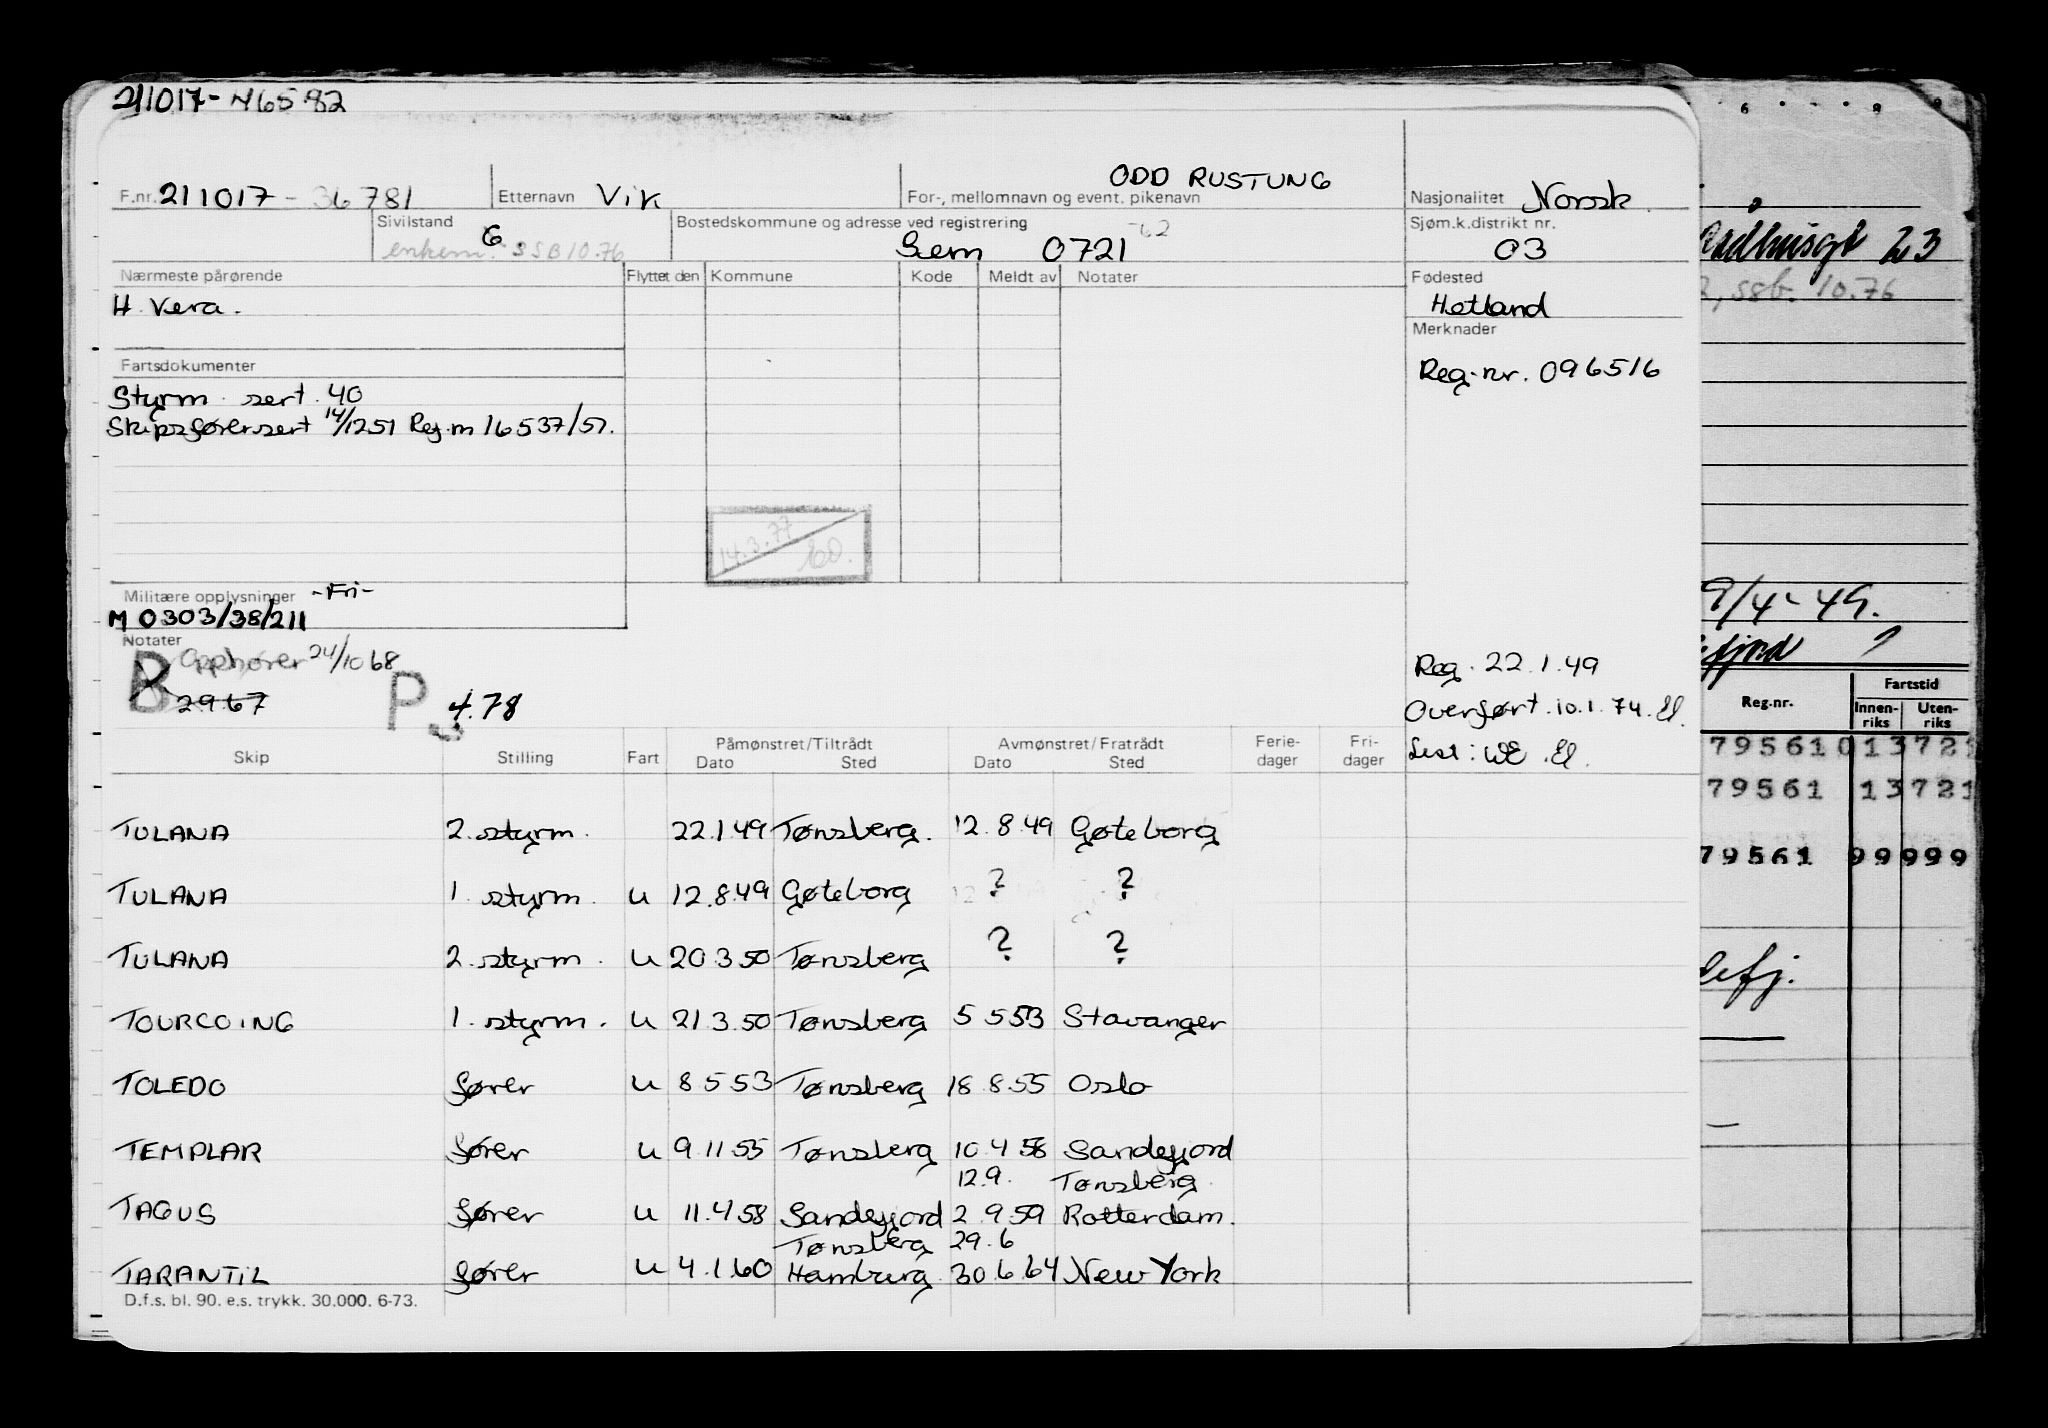 211017-46582
F.nr. 211017 - 36781 Etternavn Vik For-, mellomnavn og event. pikenavn ODD RUSTUNG Nasjonalitet Norsk.
Sivilstand G Bostedskommune og adresse ved registrering -62 Sjøm.k.distrikt nr.
enkem. SSB 10.76 Sem 0721 03
Nærmeste pårørende Flyttet den Kommune Kode Meldt av Notater Fødested
H. Vera. Hetland
Merknader
Fartsdokumenter Reg.nr. 096516
Styrm. sert. 40
Skipsførersert 14/12 51 Reg.nr 16537/51.
14.3.77
Militære opplysninger -Fri-
M 0303/38/211
Notater
B Opphører 24/10 68 Reg. 22.1.49
29.67 P 4.78 Overført. 10.1.74. El.
Lest: WE. El.
Skip Stilling Fart Påmønstret/Tiltrådt Dato Sted Avmønstret/Fratrådt Dato Sted Ferie-dager Fri-dager
TULANA 2. styrm. 22.1.49 Tønsberg. 12.8.49 Gøteborg
TULANA 1. styrm. u 12.8.49 Gøteborg ? ?
TULANA 2. styrm. u 20.3.50 Tønsberg ? ?
TOURCOING 1. styrm. u 21.3.50 Tønsberg 5.5.53 Stavanger
TOLEDO fører u 8.5.53 Tønsberg 18.8.55 Oslo
TEMPLAR fører u 9.11.55 Tønsberg 10.4.58 Sandefjord
12.9. Tønsberg.
TAGUS fører u 11.4.58 Sandefjord 2.9.59 Rotterdam.
Tønsberg 29.6
TARANTIL fører u 4.1.60 Hamburg 30.6.64 New York
D.f.s. bl. 90. e.s. trykk. 30.000. 6-73.
23
ssb. 10.76
9/4-49.
fjord ?
Reg.nr. Fartstid
Innen-riks Uten-riks
795610 13721
79561 13721
79561 99999
efj.